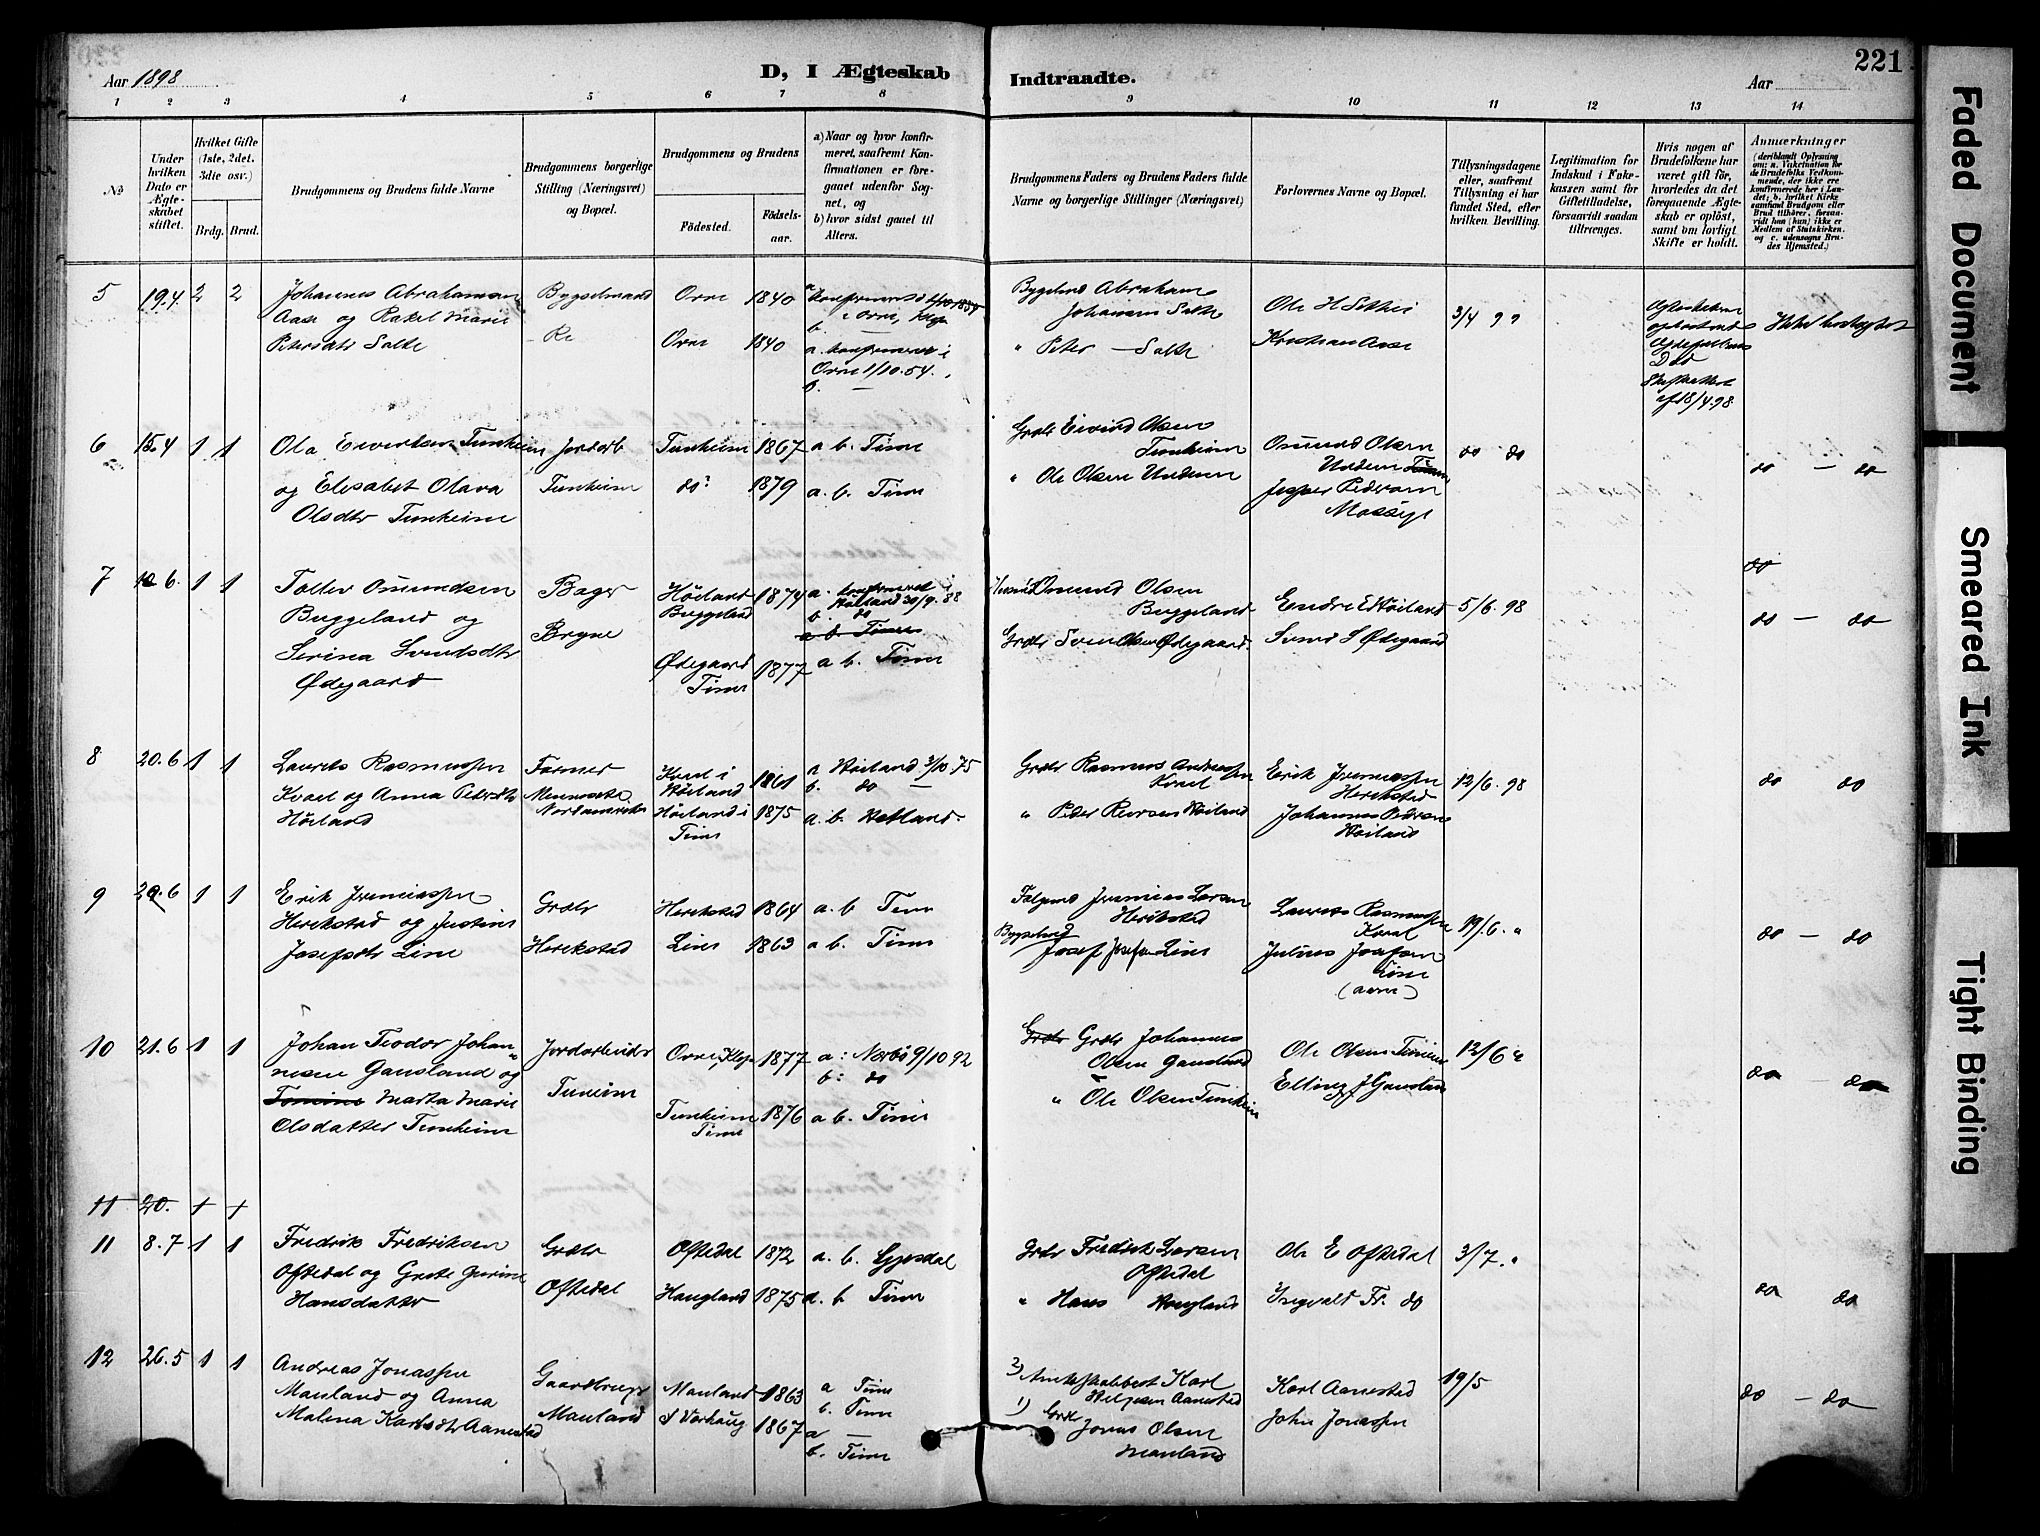 Aar 1898
D, I Ægteskab
Indtraadte.
Aar
221
1 2 3 4 5 6 7 8 9 10 11 12 13 14
No
Under hvilken Dato er Ægteskabet stiftet.
Hvilket Gifte (1ste, 2det, 3die osv.)
Brdg. Brud.
Brudgommens og Brudens fulde Navne
Brudgommens borgerlige Stilling (Næringsvei) og Bopæl.
Brudgommens og Brudens
Födested.
Födselsaar.
a) Naar og hvor konfirmeret, saafremt Konfirmationen er foregaaet udenfor Sognet, og
b) hvor sidst gaaet til Alters.
Brudgommens Faders og Brudens Faders fulde Navne og borgerlige Stillinger (Næringsvei)
Forlovernes Navne og Bopæl.
Tillysningsdagene eller, saafremt Tillysning ei har fundet Sted, efter hvilken Bevilling.
Legitimation for Indskud i Enkekassen samt for Giftetilladelse, forsaavidt saadan tiltrænges.
Hvis nogen af Brudefolkene har været gift för, hvorledes da det foregaaende Ægteskab er oplöst, samt om lovligt Skifte er holdt.
Anmærkninger
(deriblandt Oplysning om: a. Vakcination for de Brudefolks Vedkommende, der ikke ere konfirmerede her i Landet; b. hvilket Kirkesamfund Brudgom eller Brud tilhörer, forsaavidt han (hun) ikke er Medlem af Statskirken, og c. udensogns Brudes Hjemsted.)
5 19.4. 2 2 Johannes Abrahamsen Bygselmand Orre 1840 a konfirmeret
Aase og Rakel Marie Re i Orre, Klep
Petersdtr Salte Orre 1840 a. konfirmeret i
Orre 1/10.54.
b. —
Bygslmd Abraham
Johansen Salte Ole H Sother 3/4 98
" Peter — Salte Kristian Aase
Død
af 18/4.98.
6 15.4 1 1 Ola Eivertsen Tunheim Jordarb Tunheim 1867 a b. Time
og Elisabet Olava Tunheim do 1879 a. b. Time
Olsdtr Tunheim
Grdbr Eivind Olsen
Tunheim Osmund Olsen do do
" Ole Olsen Undem Undem Time
Jesper Pedersen
Mossige
do — do
7 10 6. 1 1 Tollev Osmundsen Bager Höiland 1874 a. konfirmeret i
Buggeland og Bryne Buggeland Höiland 30/9.88
Serina Svendsdtr b. do
Ødegaard Ødegaard 1877 a b. Time
Time
Osmund Olsen
Buggeland Endre E Höiland 5/6. 98
Grdbr Sven Olsen Ødegaard. Svend S Ødegaard
do
do — do
8 20.6 1 1 Laurits Rasmussen Farmer Kval i 1861 a Höiland 3/10 75
Kval og Anna Pedersdtr Minnesota Höiland b. do —
Höiland Nordamerika Höiland i 1875 a. b. Hetland.
Time
Grdbr Rasmus Andreassen
Kval Erik Jeremiassen 12/6. 98
Herikstad
" Peder Reiersen Höiland Johannes Pedersen
Höiland
do do
9 20.6 1 1 Erik Jeremiassen Grdbr Herikstad 1864 a. b Time
Herikstad og Justine Herikstad Line 1863 a b. Time
Josefsdtr Line
Folgemd Jeremias Larsen
Herikstad Laurits Rasmussen
Kval 19/6. "
Bygselmd
Josef Josefsen Line Julius Josefsen
Line
do — do
10 21.6 1 1 Johan Teodor Johan- Jordarbeider Orre, Klep 1877 a: Nærbö 9/10 92
nesen Gausland og Tunheim b: do
Marta Marie Tunheim 1876 a b. Time
Olsdatter Tunheim Time
Grdbr Grdbr Johannes
Olsen Gausland Ole Olsen Tunheim 12/6 "
" Ole Olsen Tunheim Elling J Gausland
do — do
11 20. 1 1
11 8.7 1 1 Fredrik Fredriksen Grdbr Oftedal 1872 a. b. Gjesdal
Oftedal og Grete Gurine Oftedal Haugland 1875 a. b Time
Hansdatter
Grdbr Fredrik Larsen
Oftedal Ole E Oftedal 3/7. "
" Hans Haugland Ingvald Fr. do
do do
12 26.5 1 1 Andreas Jonassen Gaardbruger Mauland 1863 a Time
Mauland og Anna Mauland b. Time
Malena Karlsdtr Aanestad Varhaug 1867 a —
b. Time
2) Amtsskolebest Karl
Aanestad Karl Aanestad 19/5
1) Grdbr Jonas Olsen John Jonassen
Mauland
do — do
Faded Document
Smeared Ink
Tight Binding